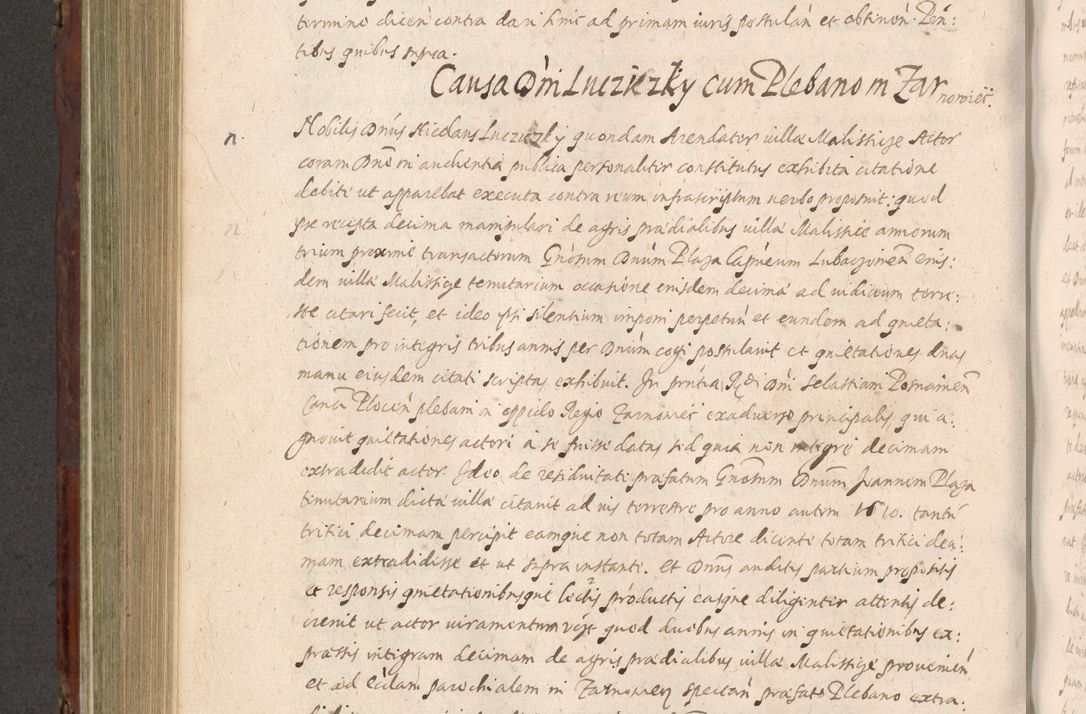 termino dicen contra dari hinc ad primam iuris postulan et obtinen Pñ:
tibus quibus supra.
Causa Dñi Lucziczky cum Plebano in Zar
nowiec.
Nobilis Dñus Nicolaus Lucziczky quondam Arendator villæ Malissice Actor
coram Dño in audientia publica personaliter constitutus exhibita citatione
debite ut apparebat executa contra reum infrascriptum verbo proposuit: quod
pre recepta decima manipulari de agris prædialibus villæ Malissice annorum
trium proxime transactorum Gñosum Dñum Plaza Lubaczonien eius:
dem villæ Malissice tenutarium occasione eiusdem decimæ ad iudicium terre:
stre citari fecit, et ideo ipsi silentium imponi perpetuū et eundem ad quieta:
tionem pro integris tribus annis per Dñum cogi postulavit et quietationes duas
manu eiusdem citati scriptas exhibuit. In pñtia Rdi Dñi Sebastiani Posnamien
Canci Plocen plebani in oppido Regio Zarnowiec exadverso principalis qui a:
gnovit quietationes actori à se fuisse datas sed quia non integre decimam
extradidit actor. Ideo de residuitate præfatum Gñosum Dñum Joannem Plaza
tenutarium dictæ villæ citavit ad ius terrestre pro anno autem 1610. tantū
tritici decimam percepit eamque non totam Actore dicente totam tritici deci:
mam extradidisse et ut supra instante. Et Dñus auditis partium propositis
et responsis quietationibusque lectis productis easque diligenter attentis de:
crevit ut actor iuramentum quod duobus annis in quietationibus ex:
pressis integram decimam de agris prædialibus villæ Malissice provenien
et ad Ecclam parochialem in Zarnowiec spectan præfato Plebano extra: